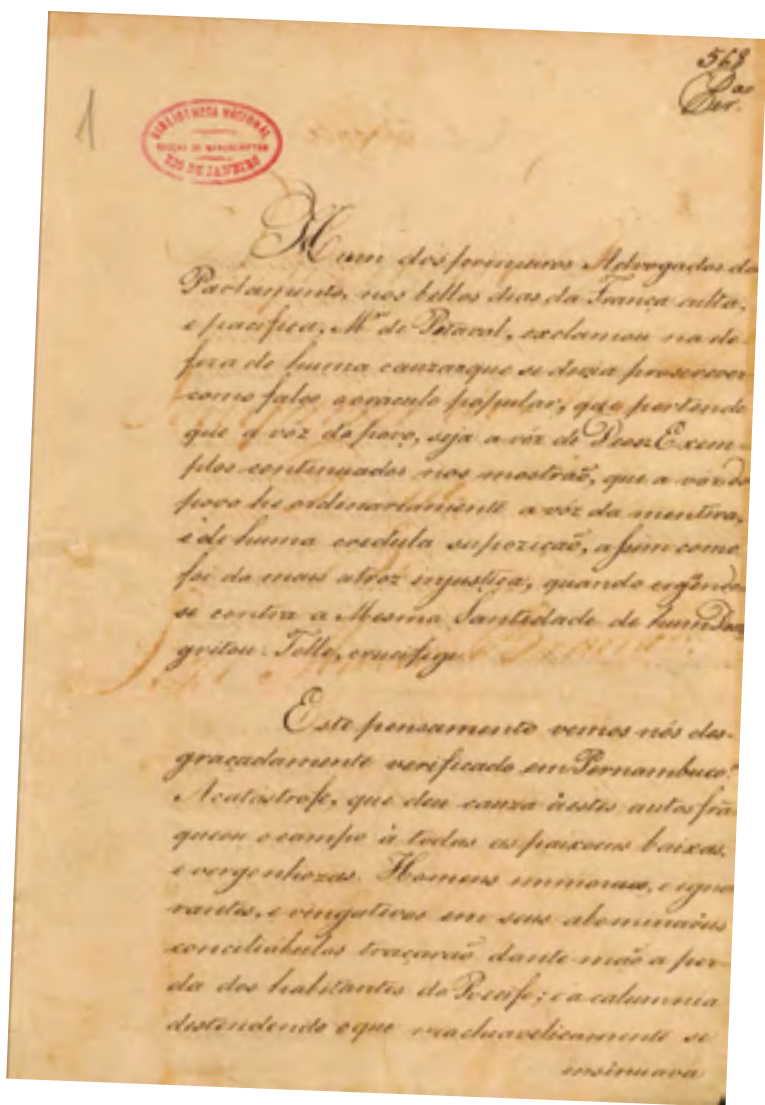 568
1
BIBLIOTHECA NACIONAL
SECÇÃO DE MANUSCRIPTOS
RIO DE JANEIRO
Hum dos primeiros Advogados do
Parlamento, nos bellos dias da França culta,
e pacifica, Mr. de Pitaval, exclamou na de-
feza de huma cauza: que se devia proscrever
como falço o oraculo popular, que pertende
que a vóz do povo, seja a vóz de Deos Exem-
plos continuados nos mostrão, que a vóz do
povo he ordinariamente a vóz da mentira,
e de huma credula supozição, assim como
foi da mais atroz injustiça, quando erguendo
se contra a Mesma Santidade de hum Deos,
gritou: Tolle, crucifige.
Este pensamento vemos nós des-
graçadamente verificado em Pernambuco!
A catastrofe, que deu cauza à estes autos fran
queou o campo à todas as paixoens baixas,
e vergonhozas. Homens immoraes, e igno
rantes, e vingativos em seus abominaveis
conciliábulos traçarão dante-mão a per-
da dos habitantes do Recife; e a calumnia
distendendo o que machiavelicamente se
insinuava